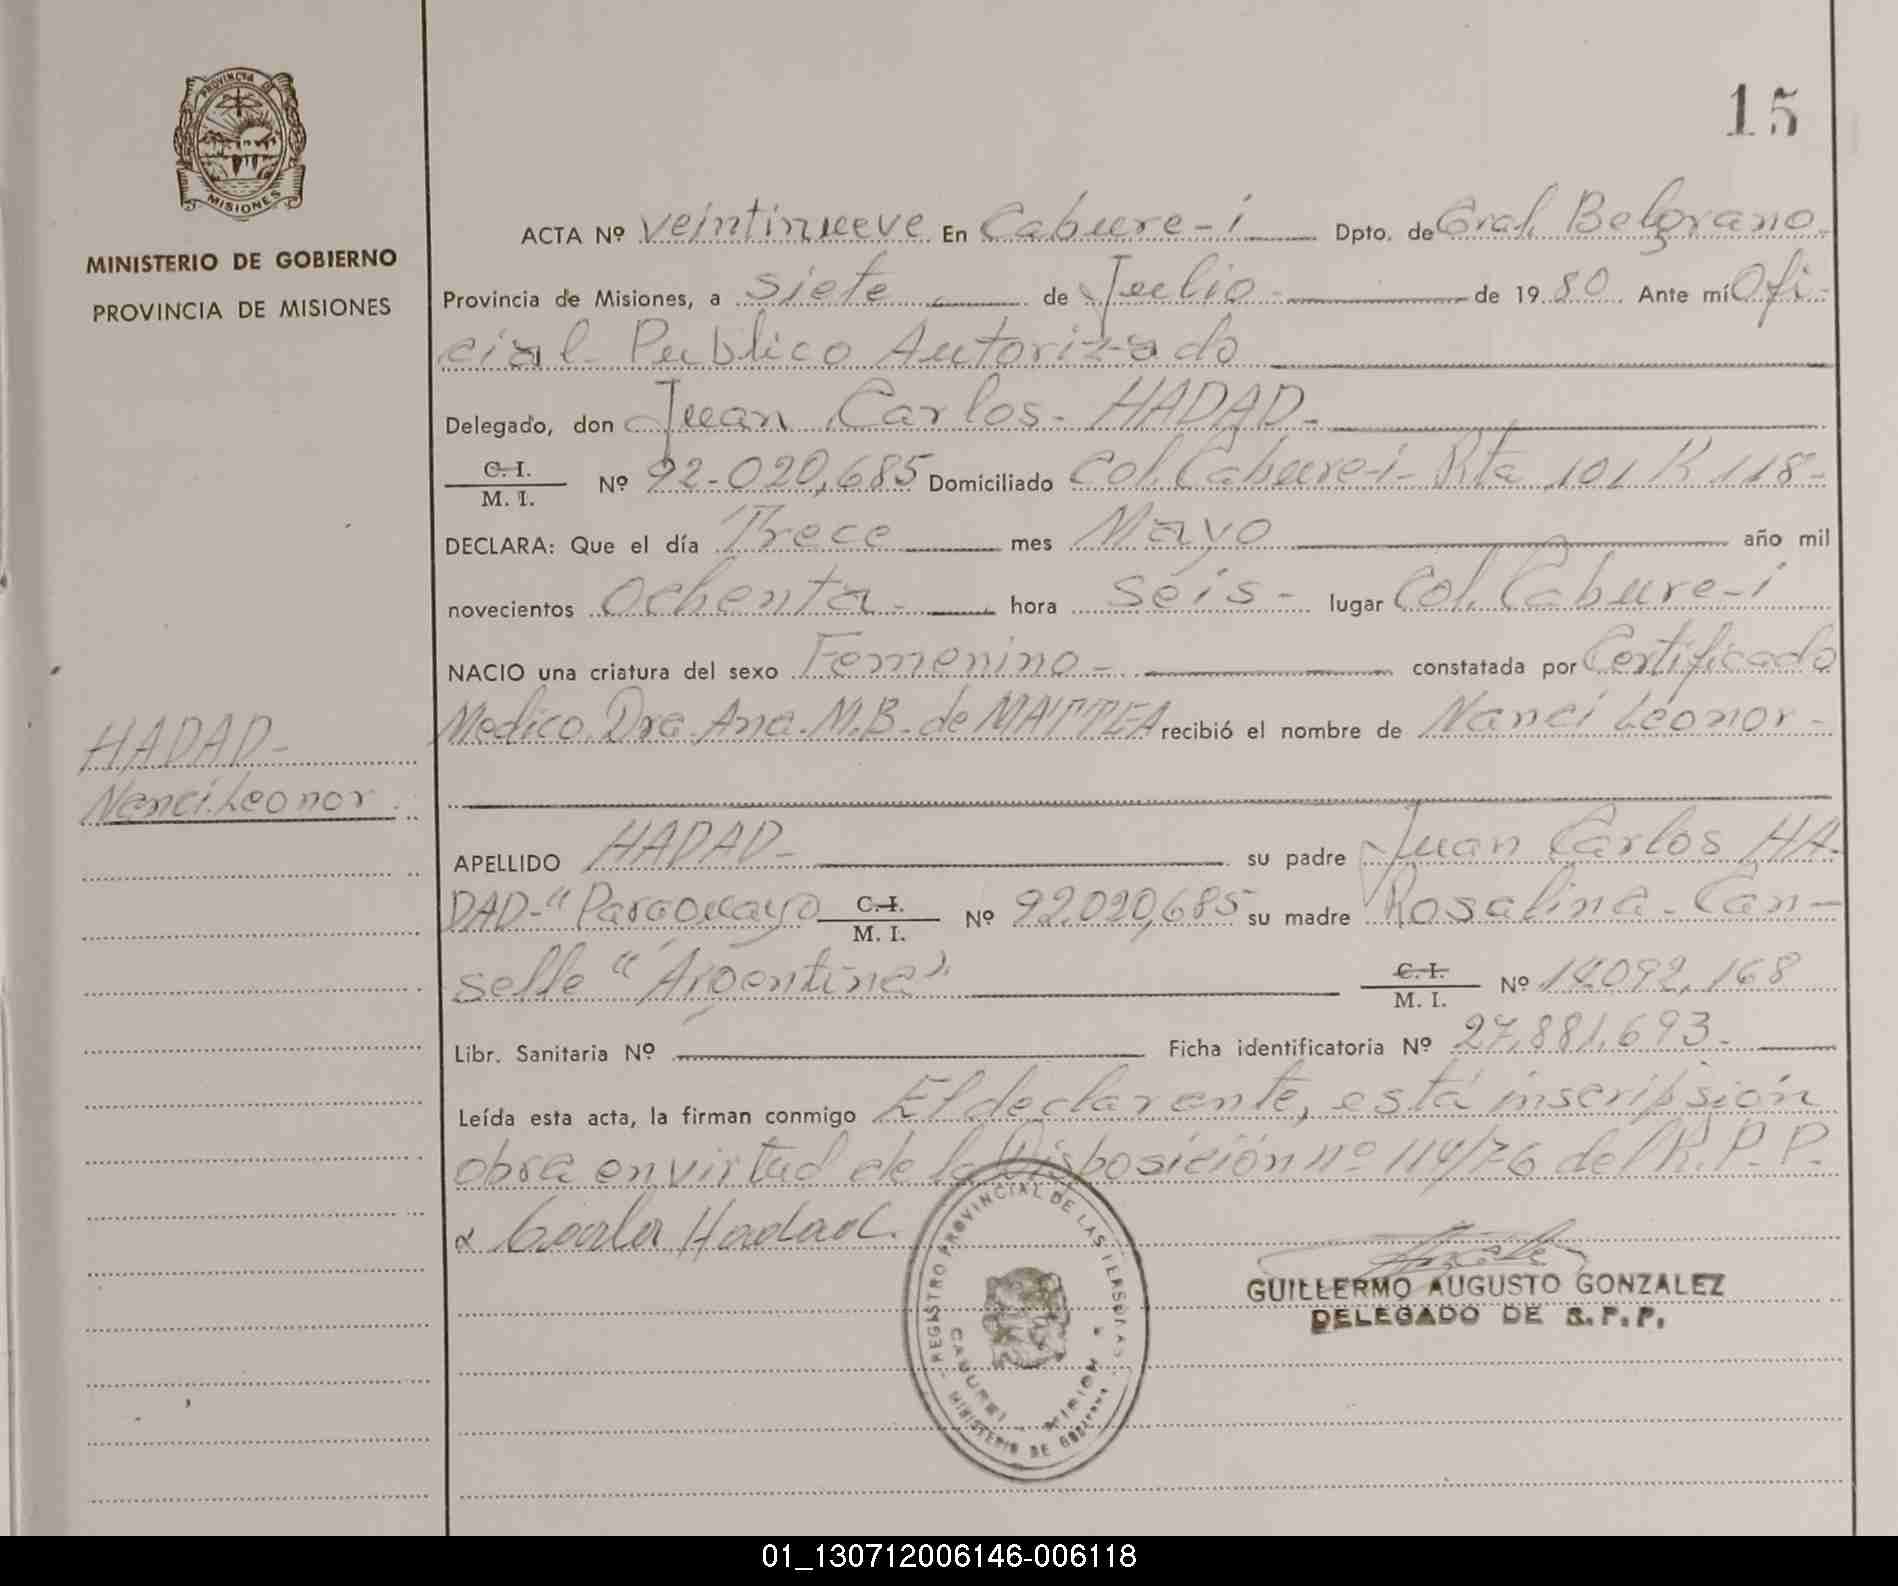 PROVINCIA DE
MISIONES
MINISTERIO DE GOBIERNO
PROVINCIA DE MISIONES
HADAD-
Nanci Leonor
15
ACTA Nº veintinueve En Cabure-i Dpto. de Gral. Belgrano
Provincia de Misiones, a siete de Julio de 19 80 Ante mí Ofi-
cial Publico Autorizado
Delegado, don Juan Carlos- HADAD-
C. I.
M. I. Nº 92.020,685 Domiciliado Col. Cabure-i- Rta 101 K 118-
DECLARA: Que el día Trece mes Mayo año mil
novecientos Ochenta- hora seis- lugar Col. Cabure-i
NACIO una criatura del sexo Femenino- constatada por Certificado
Medico Dra. Ana. M.B. de MATTEA recibió el nombre de Nanci Leonor-
APELLIDO HADAD- su padre Juan Carlos HA-
DAD-"Paraguayo C. I.
M. I. Nº 92.020,685 su madre Rosalina-Can-
selle "Argentina" C. I.
M. I. Nº 14092,168
Libr. Sanitaria Nº Ficha identificatoria Nº 27.881.693-
Leída esta acta, la firman conmigo El declarante, está inscripsión
obra en virtud de la Disposición nº 114/76 del R.P.P.
Hadad
REGISTRO PROVINCIAL DE LAS PERSONAS
MINISTERIO DE GOBIERNO
GUILLERMO AUGUSTO GONZALEZ
DELEGADO DE R.P.P.
01_130712006146-006118